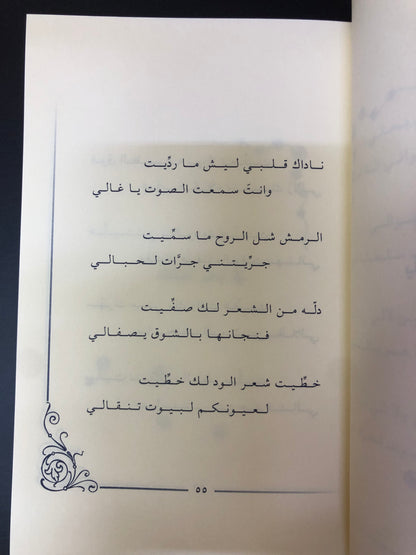 ناداك قلبي ليش ما ردِّيت
وانتَ سمعت الصوت يا غالي
الرمش شل الروح ما سمِّيت
جرِّيتني جرَّات لحبالي
دلّه من الشعر لك صفِّيت
فنجانها بالشوق يصفالي
خطِّيت شعر الود لك خطِّيت
لعيونكم لبيوت تنقالي
٥٥